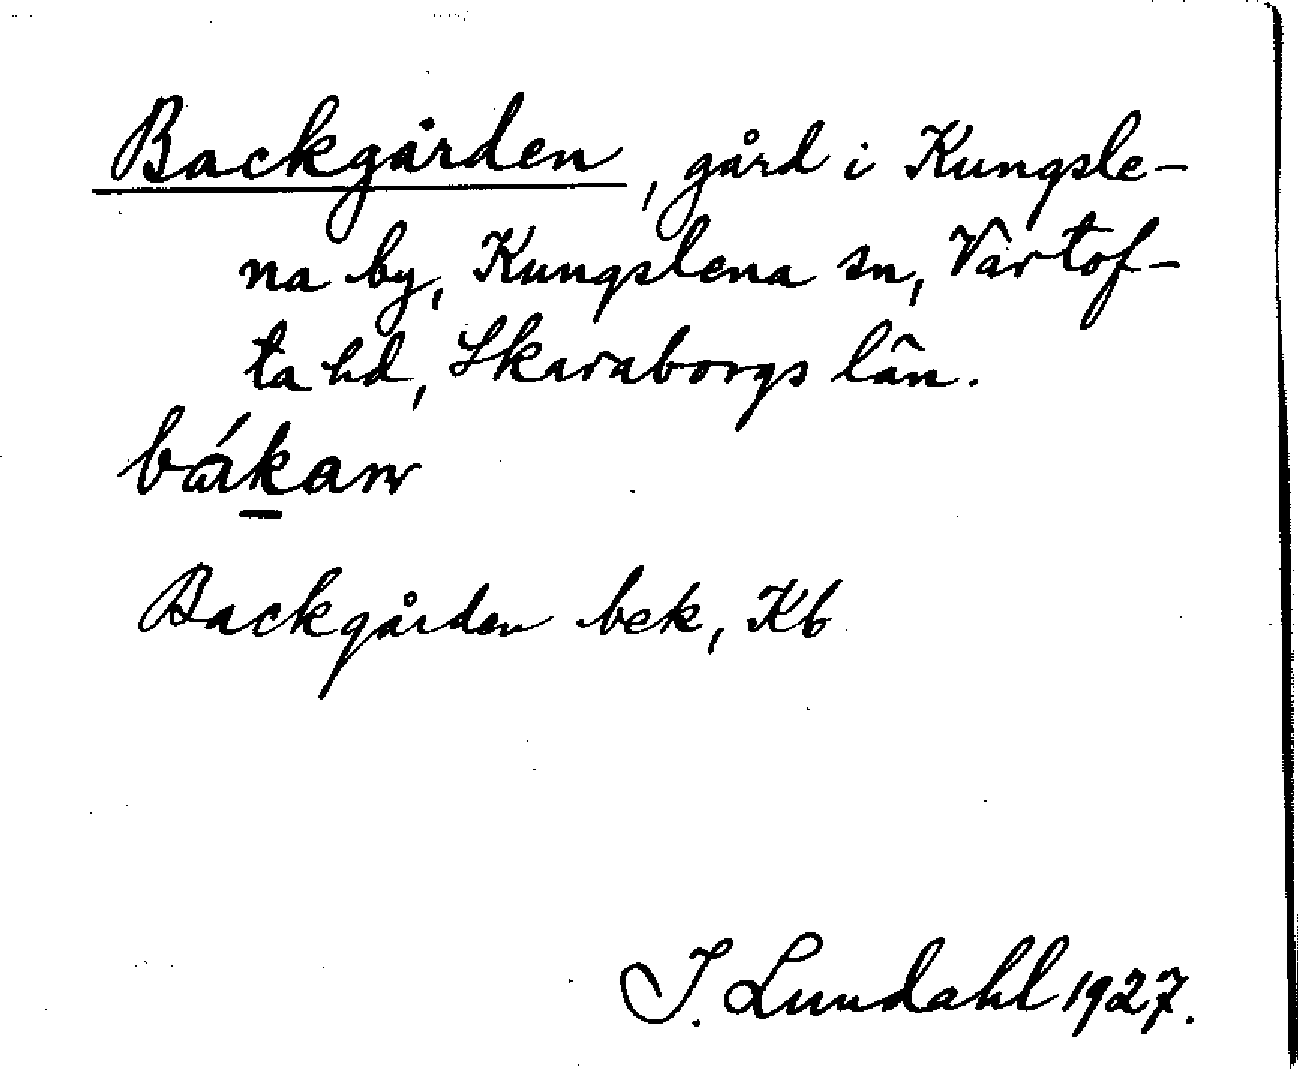 Backgården, gård i Kungsle-
na by, Kungslena sn, Vartof-
ta hd, Skaraborgs län.
bákanr
Backgården bek, Kb
I. Lundahl 1927.